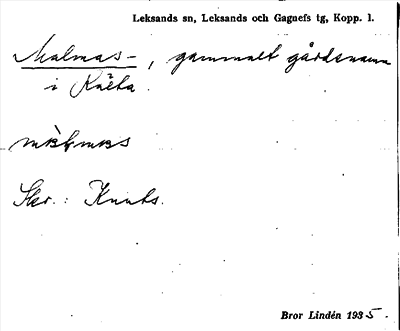 Leksands sn, Leksands och Gagnefs tg, Kopp. l.
Malmas-, gammalt gårdsnamn
i Kälta.
Skr.: Knuts.
Bror Lindén 1935.